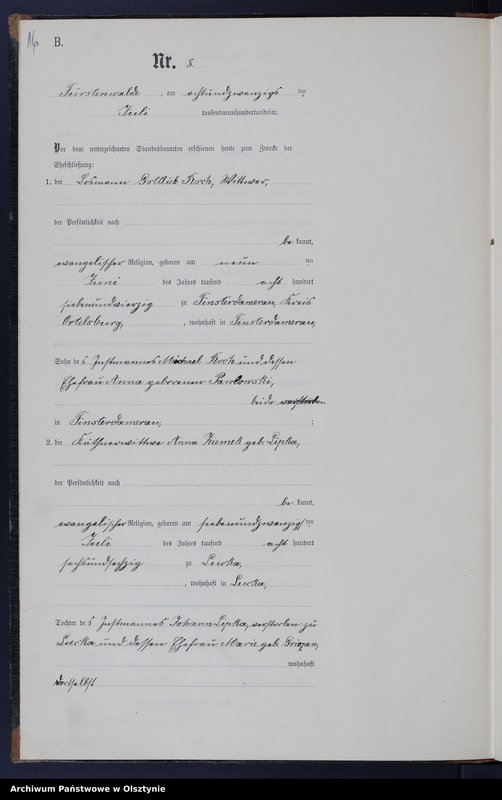 16
B.
Nr. 8.
Fürstenwalde, am achtundzwanzigsten
Juli tausendneunhundertundvier.
Vor dem unterzeichneten Standesbeamten erschienen heute zum Zwecke der
Eheschließung:
1. der Losmann Gottlieb Koch, Wittwer,
der Persönlichkeit nach
be kannt,
evangelischer Religion, geboren am neunten
Juni des Jahres tausend acht hundert
siebenundvierzig zu Finsterdamerau, Kreis
Ortelsburg, , wohnhaft in Finsterdamerau,
Sohn des Instmannes Michael Koch und dessen
Ehefrau Anna geborenen Pawlowski,
beide verstorben
in Finsterdamerau, ;
2. die Käthnerwittwe Anna geb. Lipka,
der Persönlichkeit nach
be kannt,
evangelischer Religion, geboren am siebenundzwanzigsten
Juli des Jahres tausend acht hundert
sechsundsechzig zu Lucka,
, wohnhaft in Lucka,
Tochter des Instmannes Johann Lipka, verstorben zu
Lucka und dessen Ehefrau Marie geb.
wohnhaft
daselbst
Archiwum Państwowe w Olsztynie